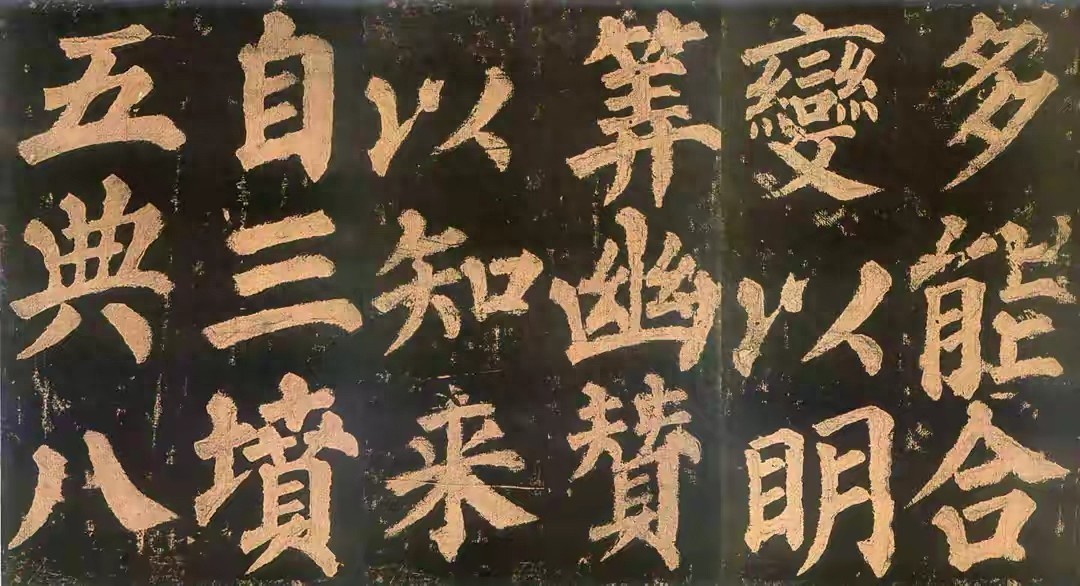 多能合
變以明
筭幽賛
以知来
自三墳
五典八